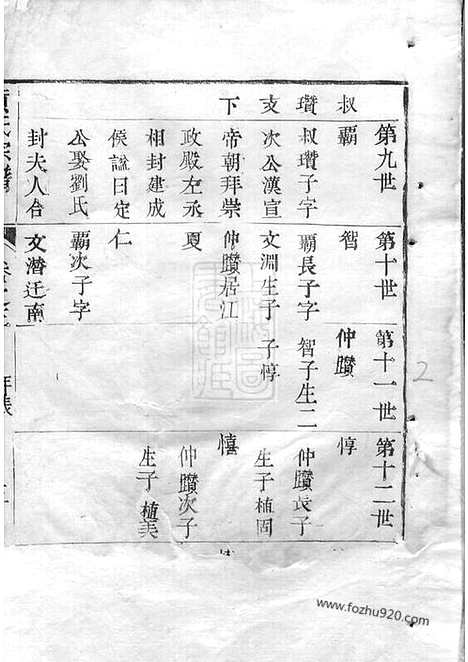 叔瓚支下
第九世
霸
叔瓚子字
次公漢宣
帝朝拜崇
政殿左丞
相封建成
侯諡曰定
公娶劉氏
封夫人合
第十世
智
霸長子字
文淵生子
仲躦居江
夏
仁
霸次子字
文潛迁南
第十一世
仲躦
智子生二
子惇
第十二世
惇
仲躦長子
生子植固
憘
仲躦次子
生子植美
年表
2
www.fozhu920.com